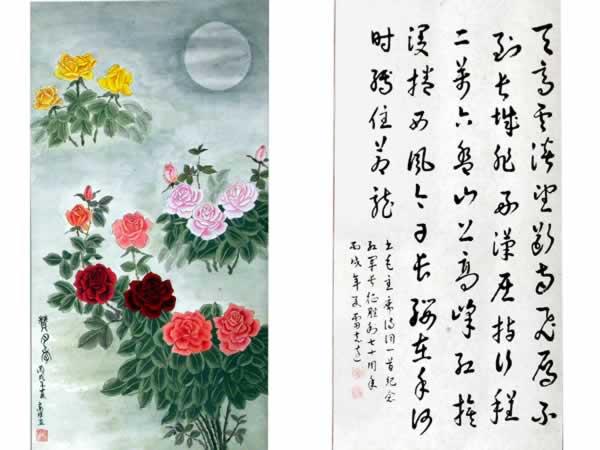 天高云淡望断南飞雁不
到长城非好汉屈指行程
二萬六盘山上高峰红旗
漫捲西风今日长缨在手何
时缚住苍龙
书毛主席诗词一首纪念
红军长征胜利七十周年
丙戌年夏
丙戌年夏